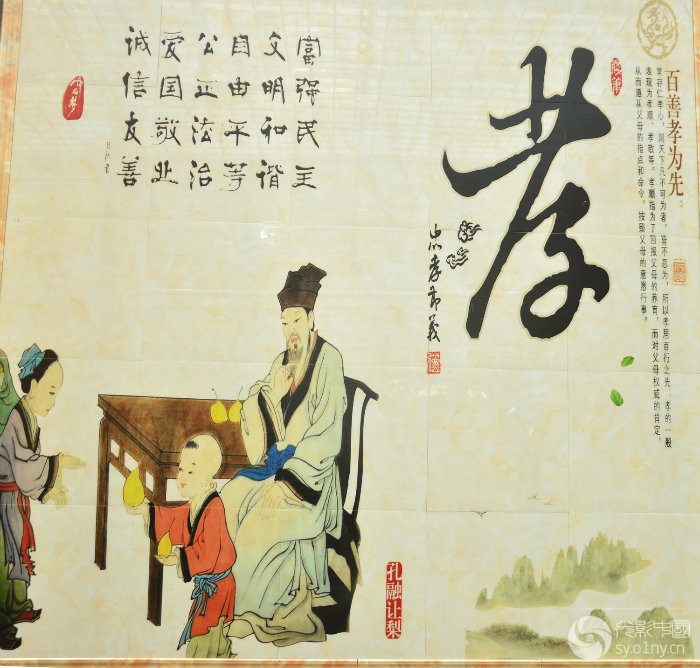 百善孝为先。
常存仁孝心，则天下凡不可为者，皆不忍为，所以孝居百行之先，孝的一般
表现为孝顺、孝敬等。孝顺指为了回报父母的养育，而对父母权威的肯定，
从而遵从父母的指点和命令，按照父母的意愿行事。
孝
忠孝節義
富强民主
文明和谐
自由平等
公正法治
爱国敬业
诚信友善
孔融让梨
光影中國
sy.o1ny.cn